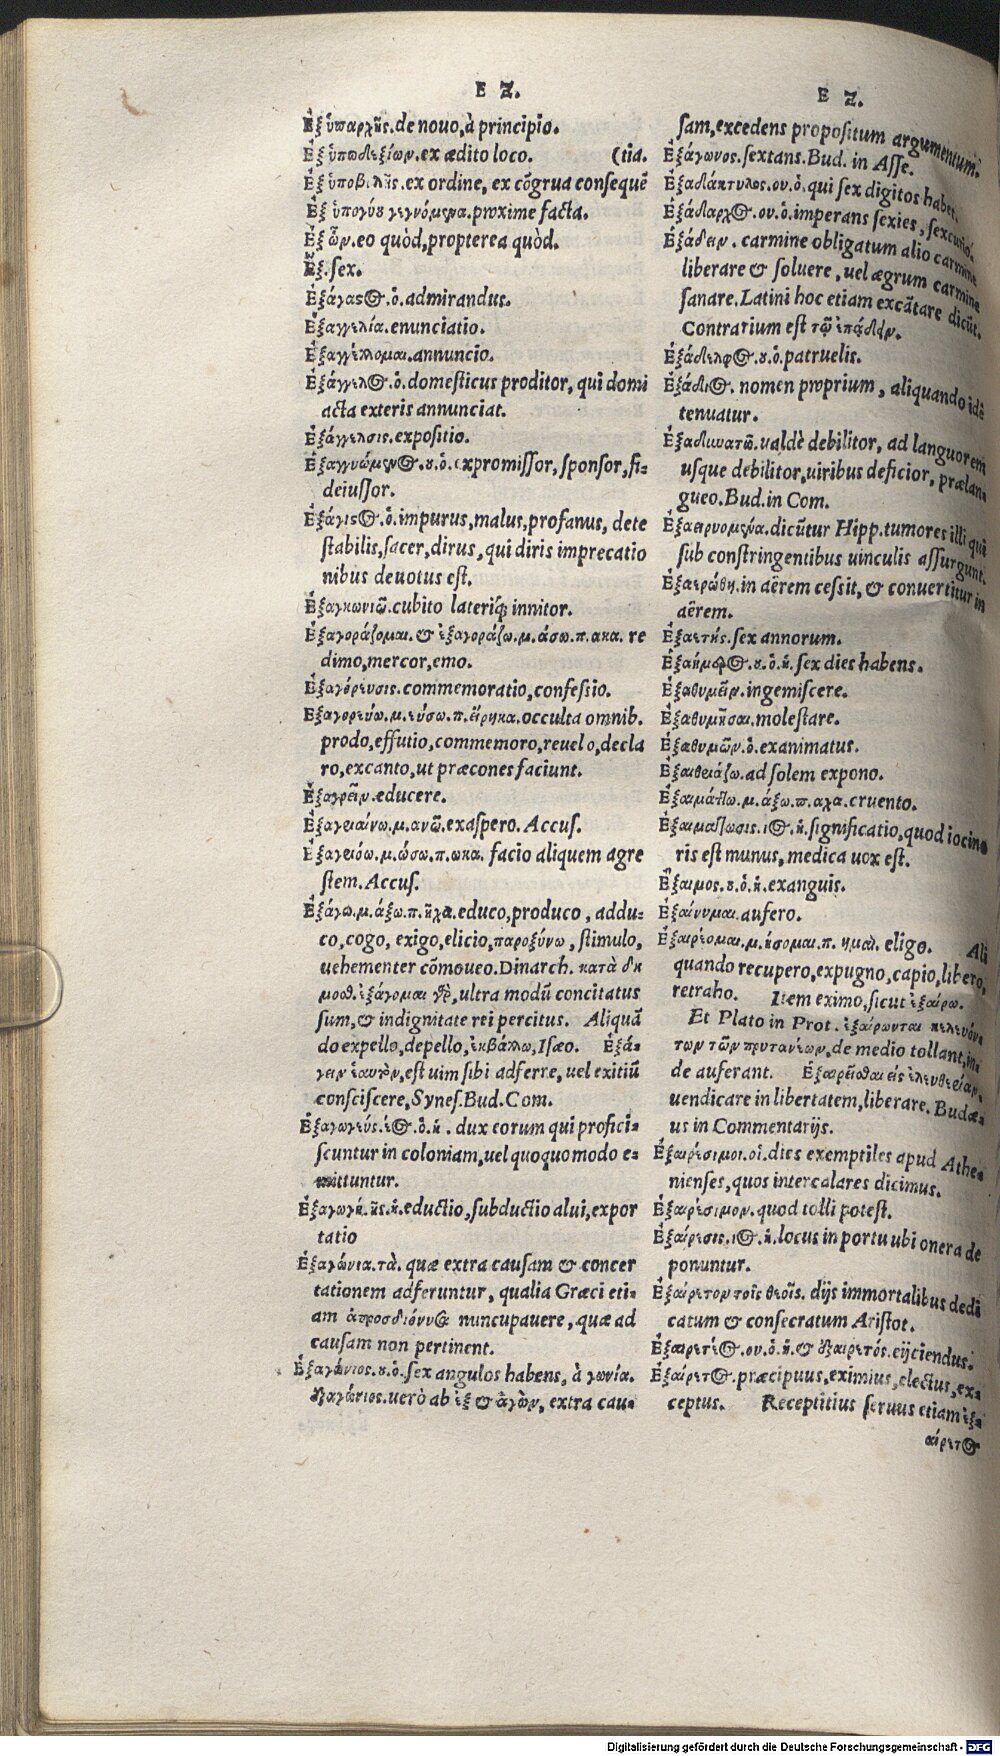 Ε Ξ.
Ἐξ ὑπαρχῆς. de nouo, à principio.
Ἐξ ὑποδεξίων. ex ædito loco. (tia.
Ἐξ ὑποβολῆς. ex ordine, ex cõgrua consequẽ
Ἐξ ὑπογύου γεγνόμενα. proxime facta.
Ἐξ ὧν. eo quòd, propterea quòd.
Ἕξ. sex.
Ἐξάγαστος. ὁ. admirandus.
Ἐξαγγελία. enunciatio.
Ἐξαγγέλλομαι. annuncio.
Ἐξάγγελος. ὁ. domesticus proditor, qui domi
acta exteris annunciat.
Ἐξάγγελσις. expositio.
Ἐξαγγυώμενος. ου. ὁ. expromissor, sponsor, fi-
deiussor.
Ἐξάγιστος. ὁ. impurus, malus, profanus, dete
stabilis, sacer, dirus, qui diris imprecatio
nibus deuotus est.
Ἐξαγκωνιῶ. cubito lateriq́ue innitor.
Ἐξαγοράζομαι. & ἐξαγοράζω. μ. άσω. π. ακα. re
dimo, mercor, emo.
Ἐξαγόρευσις. commemoratio, confessio.
Ἐξαγορεύω. μ. εύσω. π. εύρηκα. occulta omnib.
prodo, effutio, commemoro, reuelo, decla
ro, excanto, ut præcones faciunt.
Ἐξαγρεῖν. educere.
Ἐξαγριαίνω. μ. ανῶ. exaspero. Accus.
Ἐξαγριόω. μ. ώσω. π. ωκα. facio aliquem agre
stem. Accus.
Ἐξάγω. μ. άξω. π. ῆχα. educo, produco, addu-
co, cogo, exigo, elicio, παροξύνω, stimulo,
uehementer cõmoueo. Dinarch. κατὰ δη
μοσθ. ἐξάγομαι γὰρ, ultra modũ concitatus
sum, & indignitate rei percitus. Aliquã
do expello, depello, ἐκβάλλω, Isæo. Ἐξά-
γειν ἑαυτὸν, est uim sibi adferre, uel exitiũ
consciscere, Synes. Bud. Com.
Ἐξαγωγεύς. έος. ὁ. ἡ. dux eorum qui profici-
scuntur in coloniam, uel quoquomodo e-
mittuntur.
Ἐξαγωγή. ῆς. ἡ. eductio, subductio alui, expor
tatio
Ἐξαγώνια. τὰ. quæ extra causam & concer
tationem adferuntur, qualia Græci eti-
am ἀπροσδιόνυσα nuncupauere, quæ ad
causam non pertinent.
Ἑξαγώνιος. ου. ὁ. sex angulos habens, à γωνία.
ἐξαγώνιος. uerò ab ἐξ & ἀγὼν, extra cau-
Ε Ξ.
sam, excedens propositum argumentum.
Ἑξάγωνος. sextans. Bud. in Asse.
Ἑξαδάκτυλος. ου. ὁ. qui sex digitos habet.
Ἑξάδαρχος. ου. ὁ. imperans sexies, sexcurio.
Ἐξάδειν. carmine obligatum alio carmine
liberare & soluere, uel ægrum carmine
sanare. Latini hoc etiam excãtare dicũt.
Contrarium est τῷ ἐπάδειν.
Ἐξάδελφος. ου. ὁ. patruelis.
Ἐξάδιος. nomen proprium, aliquando idẽ
tenuatur.
Ἐξαδυνατῶ. ualdè debilitor, ad languorem
usque debilitor, uiribus deficior, prælan-
gueo. Bud. in Com.
Ἐξαειρυομένα. dicũtur Hipp. tumores illi qui
sub constringentibus uinculis assurgunt.
Ἐξαερώθη. in aërem cessit, & conuertitur in
aërem.
Ἑξαετής. sex annorum.
Ἑξαήμερος. ου. ὁ. ἡ. sex dies habens.
Ἐξαθυμεῖν. ingemiscere.
Ἐξαθυμῆσαι. molestare.
Ἐξαθυμῶν. ὁ. exanimatus.
Ἐξαιθειάζω. ad solem expono.
Ἐξαιμάττω. μ. άξω. π. αχα. cruento.
Ἐξαιμάτωσις. ιος. ἡ. significatio, quod iocino
ris est munus, medica uox est.
Ἔξαιμος. ου. ὁ. ἡ. exanguis.
Ἐξαίνυμαι. aufero.
Ἐξαιρέομαι. μ. ήσομαι. π. ημαι. eligo. Ali
quando recupero, expugno, capio, libero,
retraho. Item eximo, sicut ἐξαίρω.
Et Plato in Prot. ἐξαίρωνται κελευόν-
των τῶν πρυτανέων, de medio tollant, in-
de auferant. Ἐξαιρεῖσθαι εἰς ἐλευθερίαν,
uendicare in libertatem, liberare. Budæ-
us in Commentarijs.
Ἐξαιρέσιμοι. οἱ. dies exemptiles apud Athe-
nienses, quos intercalares dicimus.
Ἐξαιρέσιμον. quod tolli potest.
Ἐξαίρεσις. ιος. ἡ. locus in portu ubi onera de
ponuntur.
Ἐξαίρετον τοῖς θεοῖς. dijs immortalibus dedi
catum & consecratum Aristot.
Ἐξαιρετέος. ου. ὁ. ἡ. & ἐξαιρετός. eijciendus.
Ἐξαίρετος. præcipuus, eximius, electus, ex-
ceptus. Receptitius seruus etiam ἐξ-
αίρετος
Digitalisierung gefördert durch die Deutsche Forschungsgemeinschaft - DFG